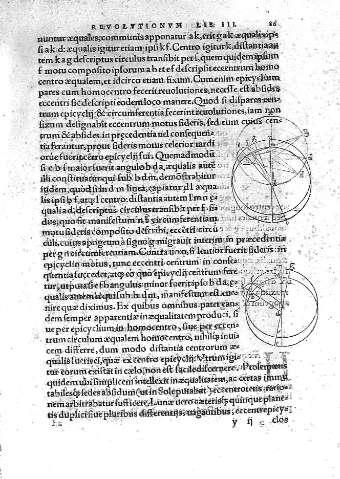 REVOLUTIONVM LIB. III. 86
nuntur æquales, communis apponatur a k, erit g a k æqualis ip
si a k d: æqualis igitur etiam ipsi k f. Centro igitur k, distantia au
tem k a g descriptus circulus transibit per f, quem quidem ipsum
f motu composito ipsorum a b et e f descripsit eccentrum homo
centro æqualem, et idcirco etiam fixum. Cum enim epicyclium
pares cum homocentro fecerit reuolutiones, necesse est absides
eccentri sic descripti eodem loco manere. Quod si dispares
centrum epicyclij & circumferentia fecerint reuolutiones, iam non
fixum designabit eccentrum motus sideris, sed eum cuius cen-
trum & absides in præcedentia uel consequen
tia ferantur, prout sideris motus celerior tardi
orue fuerit centro epicyclij sui. Quemadmodū
si angulo b d a, æqualis
illi constituatur qui sub b d m, demonstrabitur
itidem, quod si in d m linea, capiatur d l æqua-
lis ipsi b f, atq; l centro: distantia autem l m n
quali a d, descriptus circulus transibit per f
motu sideris composito describi, eccentri circu
li, cuius apogeum à signo g migrauit interim in præcedentia
per g n circumferentiam. Contra uero, si lentior fuerit sideris in
epicyclio motus, tunc eccentri centrum in conse
quentia succedet, atq; eo quo epicyclij centrum fere
tur, utputa si e b f angulus minor fuerit ipso b d a,
qualis autem ei qui sub b d m, manifestum est eue-
nire quæ diximus. Ex quibus omnibus patet ean-
dem semper apparentiæ inæqualitatem produci, si
ue per epicyclium in homocentro, siue per eccen
trum circulum æqualem homocentro, nihilq; inui
cem differre, dum modo distantia centrorum æ-
qualis fuerit ei, quæ ex centro epicyclij. Vtrum igi
tur eorum existat in cælo, non est facile discernere. Ptolemæus
quidem ubi simplicem intellexit inæqualitatem, ac certas immu
tabilesq; sedes absidum (ut in Sole putabat) eccentrotetis ratio-
nem arbitrabatur sufficere. Lunæ uero cæterisq; quinque plane-
tis duplici siue pluribus differentijs uagantibus, eccentrepicy
y ij clos